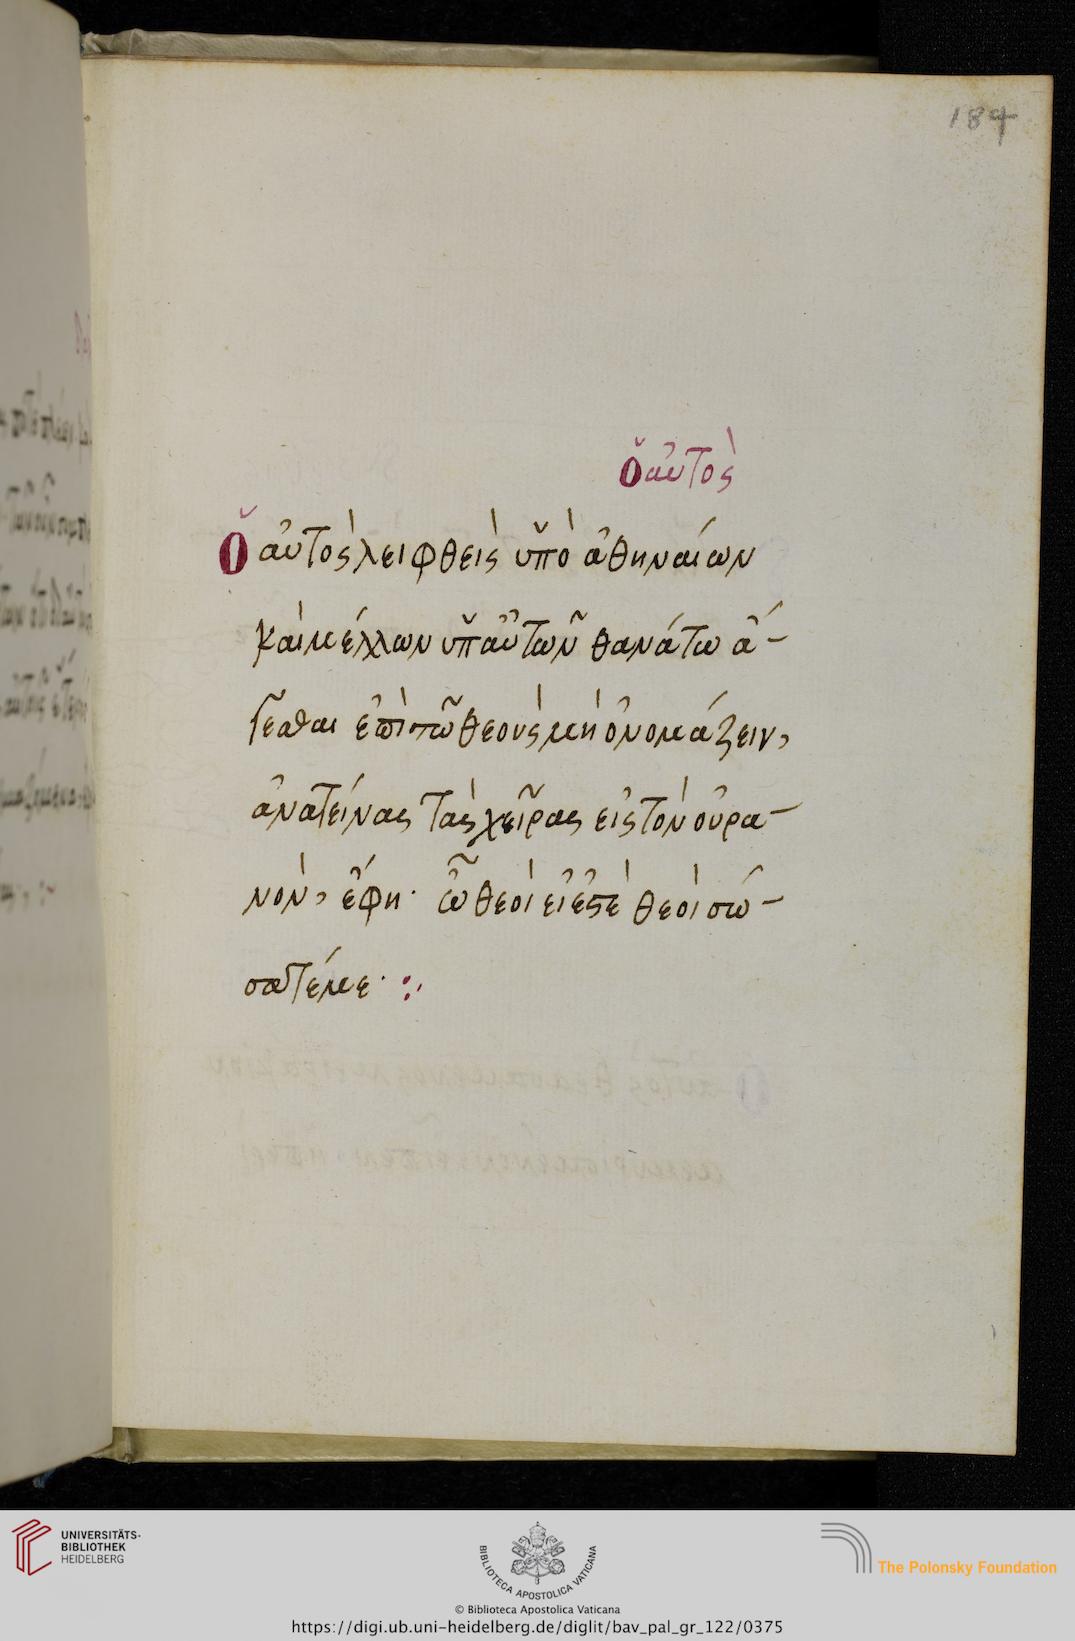 184
ὁ αὐτὸς
Ὁ αὐτὸς λειφθεὶς ὑπὸ ἀθηναίων
καὶ μέλλων ὑπ αὐτῶν θανάτω ἄ-
γεσθαι ἐπὶ τῶ θεοὺς μὴ ὀνομάζειν,
ἀνατείνας τὰς χεῖρας εἰς τὸν οὐρα-
νὸν, ἔφη· ὦ θεοὶ εἰ ἐστὲ θεοὶ σώ-
σατέ με· :·
UNIVERSITÄTS-
BIBLIOTHEK
HEIDELBERG
BIBLIOTECA APOSTOLICA VATICANA
The Polonsky Foundation
© Biblioteca Apostolica Vaticana
https://digi.ub.uni-heidelberg.de/diglit/bav_pal_gr_122/0375